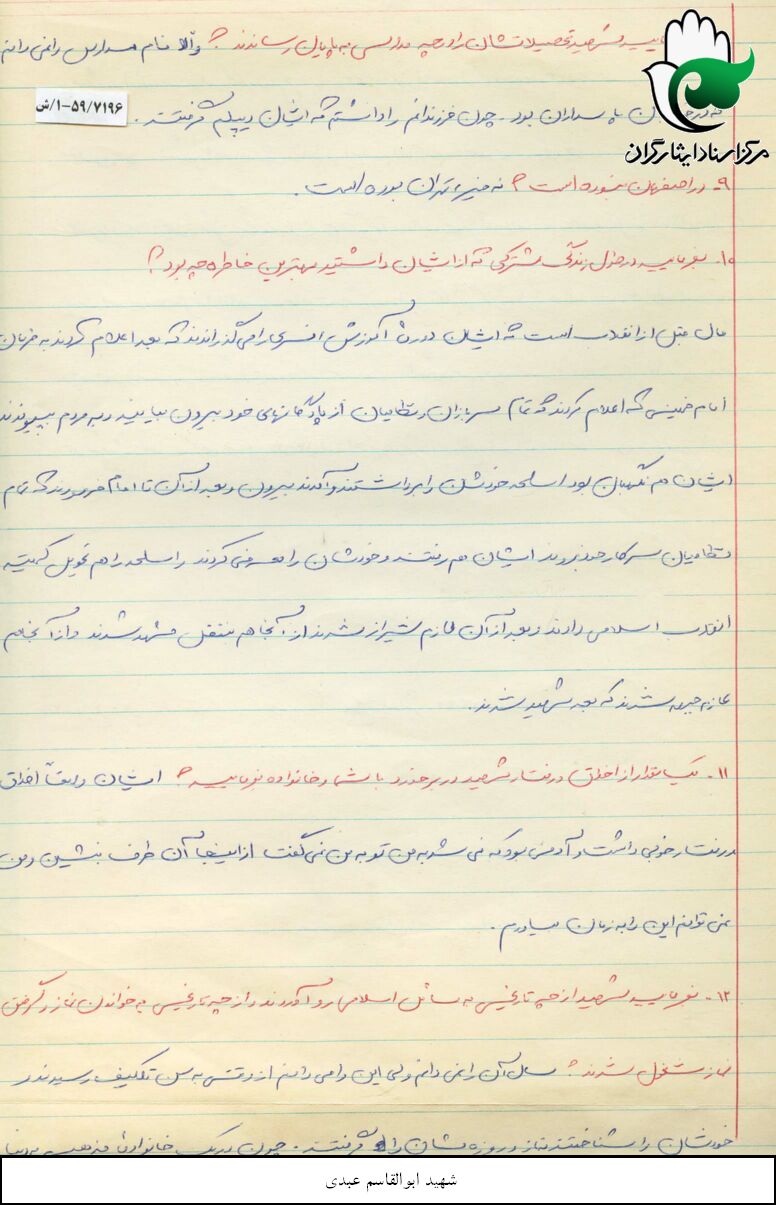 شهید تحصیلاتشان را در چه مدارسی به پایان رساندند؟ والا نام مدارس را نمی دانم
مرکز اسناد ایثارگران
پاسداران بود. چون فرزندانم را داشتم که ایشان دیپلم گرفتند.
۱/ش-۵۹/۷۱۹۶
۹- در اصفهان نبوده است؟ نه خیر، تهران بوده است.
۱۰- بفرمایید در طول زندگی مشترکی که از ایشان داشتید بهترین خاطره چه بود؟
مال قبل از انقلاب است که ایشان دورهٔ آموزش افسری را می گذراندند که بعد اعلام کردند به فرمان
امام خمینی که اعلام کردند که تمام سربازان و نظامیان از پادگانهای خود بیرون بیایند و به مردم بپیوندند
ایشان هم نگهبان بود اسلحه خودشان را برداشتند و آمدند بیرون و بعد از آن تا امام فرمودند که تمام
نظامیان سر کار خود بروند ایشان هم رفتند و خودشان را معرفی کردند و اسلحه را هم تحویل کمیته
انقلاب اسلامی دادند و بعد از آن عازم شیراز شدند از آنجا هم منتقل مشهد شدند و از آنجا هم
عازم جبهه شدند که بعد شهید شدند.
۱۱- یک مقدار از اخلاق و رفتار شهید در برخورد با شما و خانواده بفرمایید؟ ایشان واقعاً اخلاق
و رفتار خوبی داشت و آدمی بود که نمی شد به من تو به من نمی گفت از اینجا آن طرف بنشین و من
نمی توانم این را به زبان بیاورم.
۱۲- بفرمایید شهید از چه تاریخی به مسائل اسلامی رو آوردند و از چه تاریخی به خواندن نماز و گرفتن
نماز مشغول شدند؟ سال آن را نمی دانم ولی این را می دانم از وقتی به سن تکلیف رسیدند و
خودشان را شناختند نماز و روزه شان را گرفتند. چون در یک خانوادهٔ مذهبی به دنیا
شهید ابوالقاسم عبدی